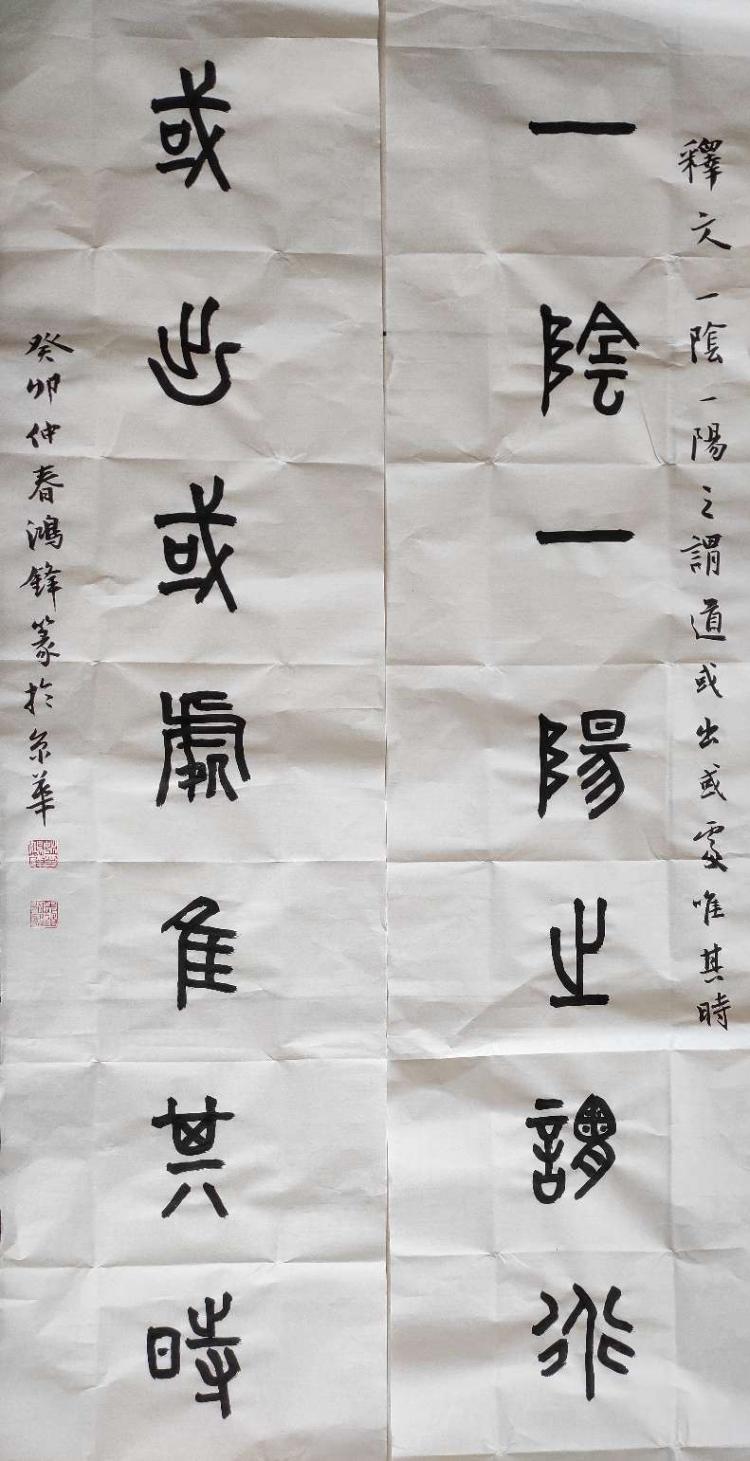 釋文一陰一陽之謂道或出或處唯其時
一陰一陽之謂道
或出或處隹其時
癸卯仲春鴻鋒篆於京華